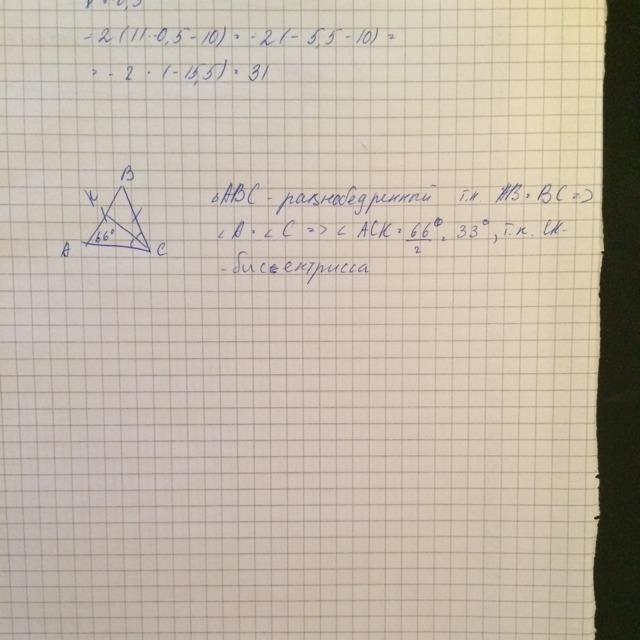 -2(11·0,5-10) = -2(-5,5-10) =
= -2 · (-15,5) = 31
B
K
66°
A
C
△ABC - равнобедренный т.к AB = BC =>
∠A = ∠C => ∠ACK = 66°/2 = 33°, т.к. CK-
- биссентрисса